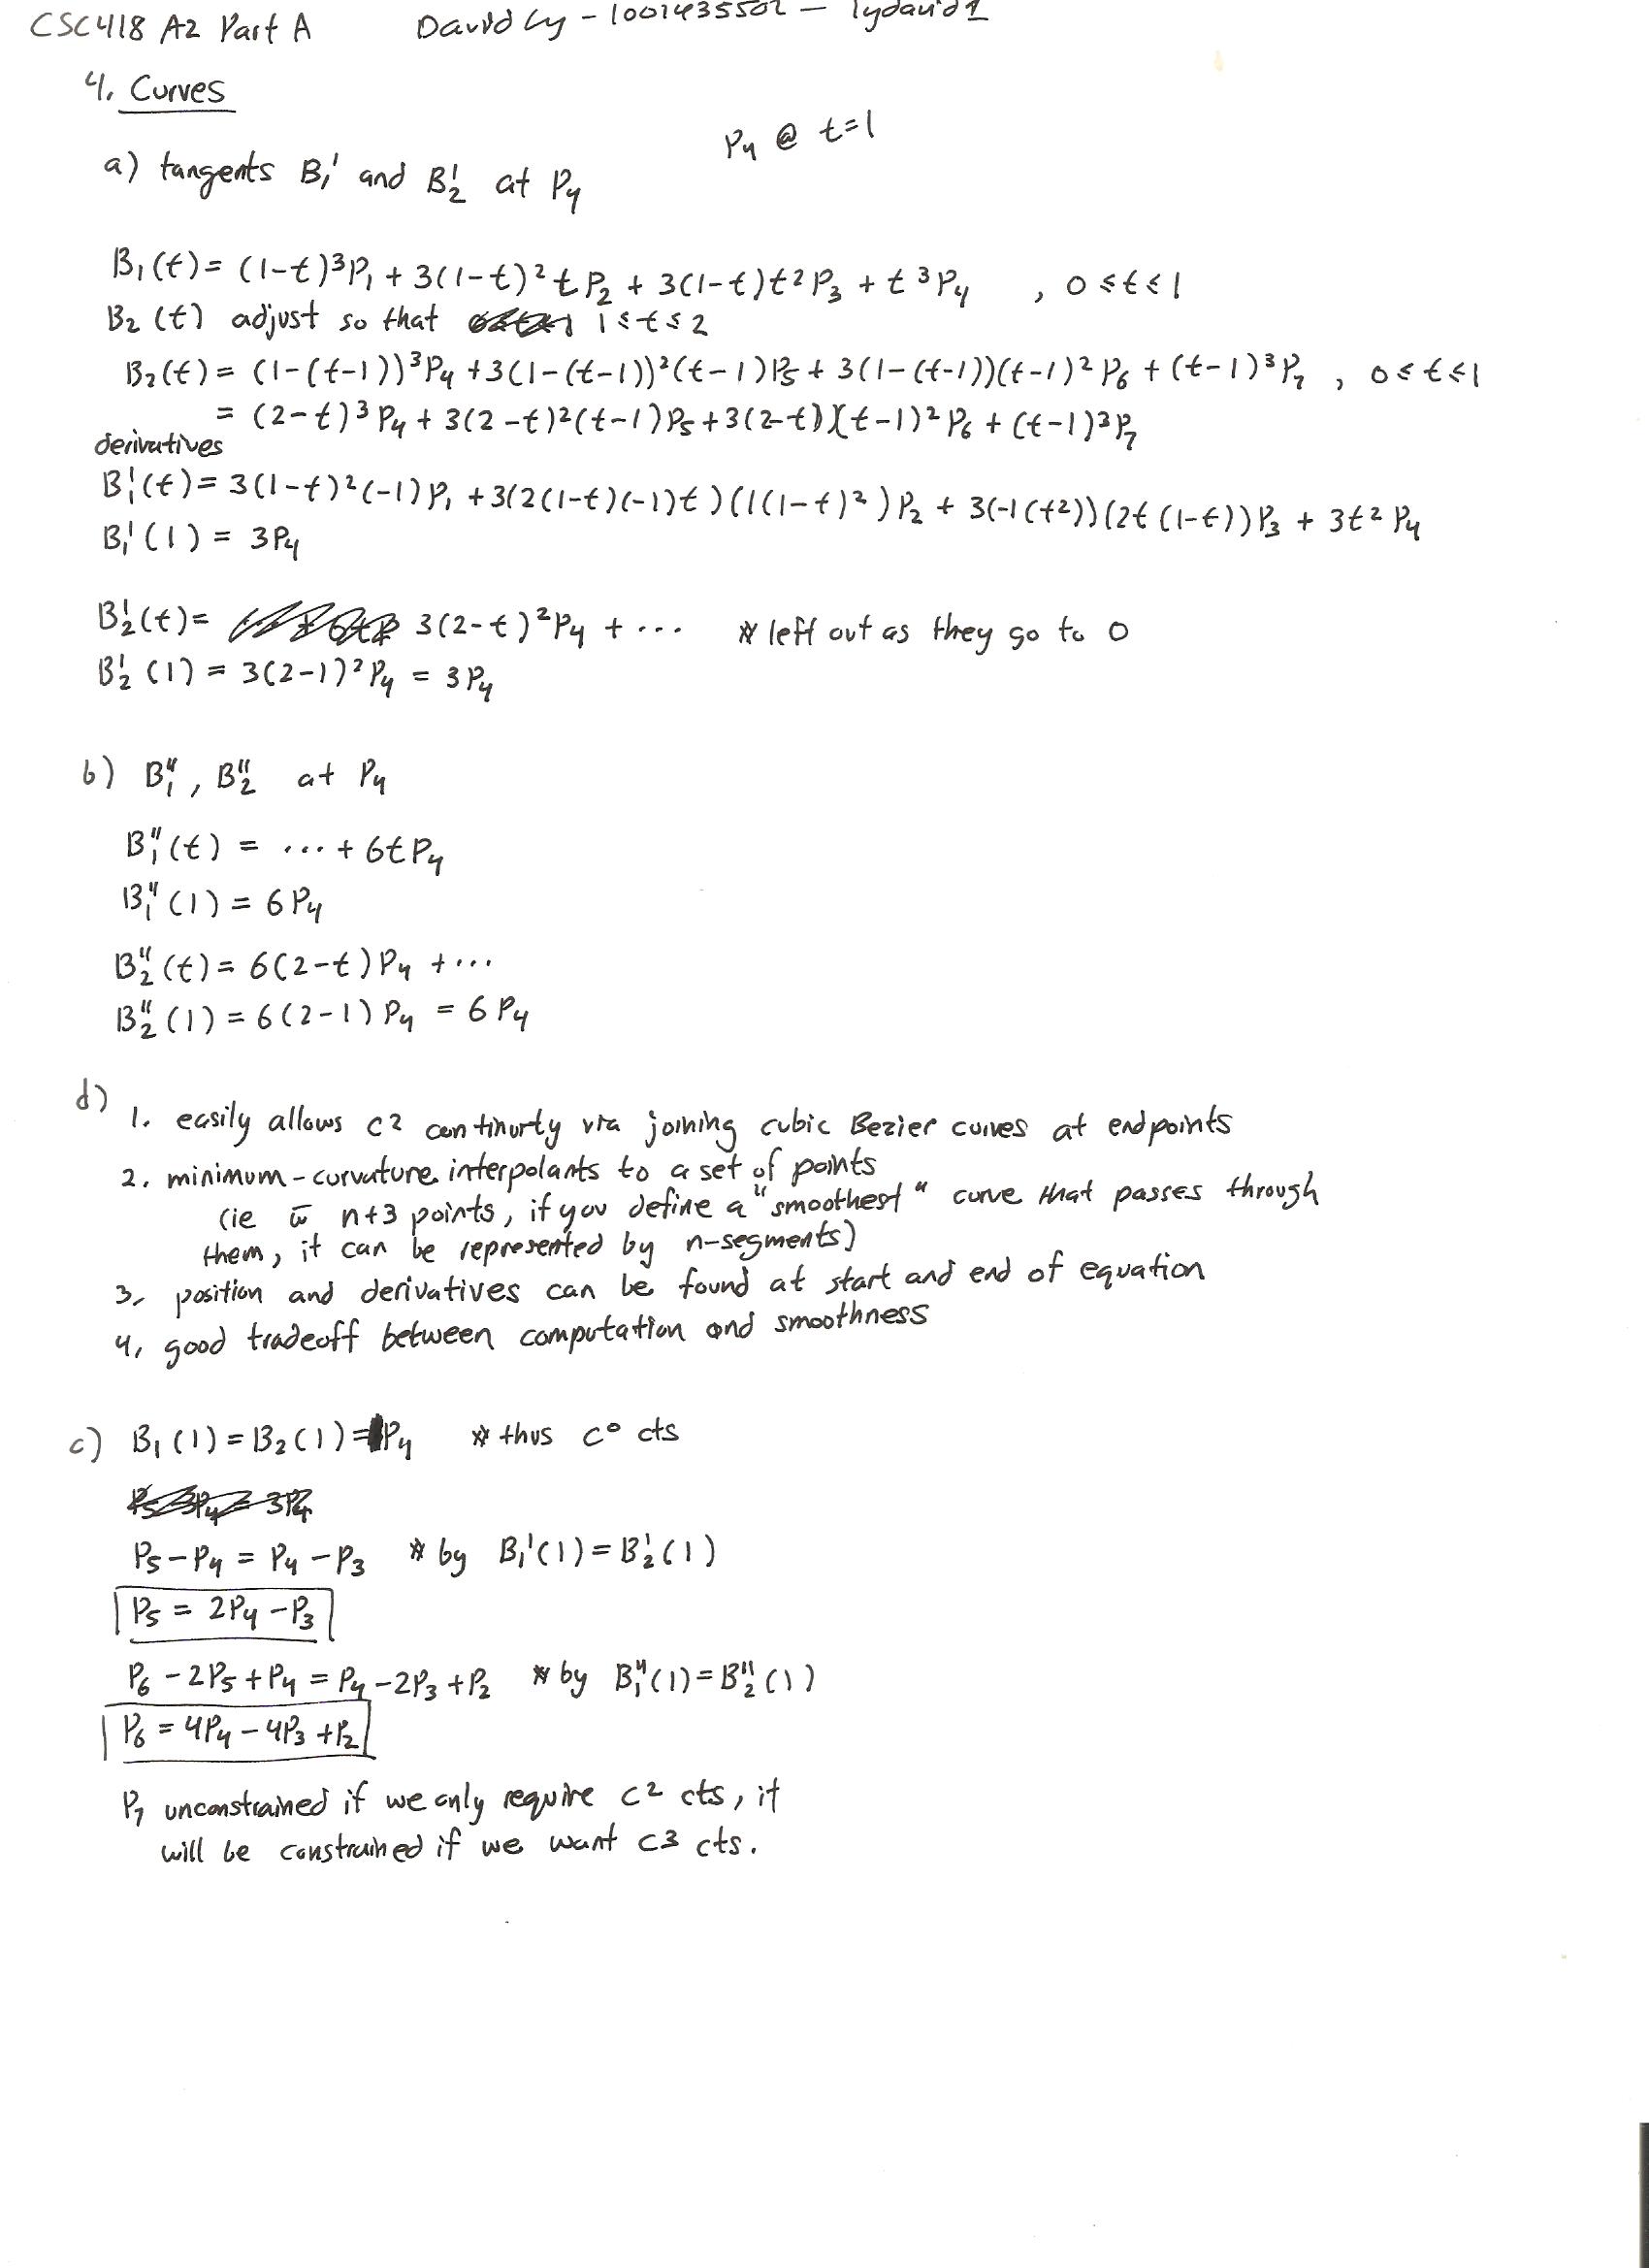 CSC418 A2 Part A David Ly - 1001435502 - lydavid1
4. Curves
P₄ @ t=1
a) tangents B₁' and B₂' at P₄
B₁(t) = (1-t)³P₁ + 3(1-t)²tP₂ + 3(1-t)t²P₃ + t³P₄ , 0≤t≤1
B₂(t) adjust so that 1≤t≤2
B₂(t) = (1-(t-1))³P₄ + 3(1-(t-1))²(t-1)P₅ + 3(1-(t-1))(t-1)²P₆ + (t-1)³P₇ , 0≤t≤1
= (2-t)³P₄ + 3(2-t)²(t-1)P₅ + 3(2-t)(t-1)²P₆ + (t-1)³P₇
derivatives
B₁'(t) = 3(1-t)²(-1)P₁ + 3(2(1-t)(-1)t)(1(1-t)²)P₂ + 3(-1(t²))(2t(1-t))P₃ + 3t²P₄
B₁'(1) = 3P₄
B₂'(t) = 3(2-t)²P₄ + ... * left out as they go to 0
B₂'(1) = 3(2-1)²P₄ = 3P₄
b) B₁'', B₂'' at P₄
B₁''(t) = ... + 6tP₄
B₁''(1) = 6P₄
B₂''(t) = 6(2-t)P₄ + ...
B₂''(1) = 6(2-1)P₄ = 6P₄
d)
1. easily allows c2 continuity via joining cubic Bezier curves at endpoints
2. minimum-curvature interpolants to a set of points
(ie w̄ n+3 points, if you define a "smoothest" curve that passes through
them, it can be represented by n-segments)
3. position and derivatives can be found at start and end of equation
4. good tradeoff between computation and smoothness
c) B₁(1) = B₂(1) = P₄ * thus c⁰ cts
P₅ - P₄ = P₄ - P₃ * by B₁'(1) = B₂'(1)
P₅ = 2P₄ - P₃
P₆ - 2P₅ + P₄ = P₄ - 2P₃ + P₂ * by B₁''(1) = B₂''(1)
P₆ = 4P₄ - 4P₃ + P₂
P₇ unconstrained if we only require c2 cts, it
will be constrained if we want c3 cts.